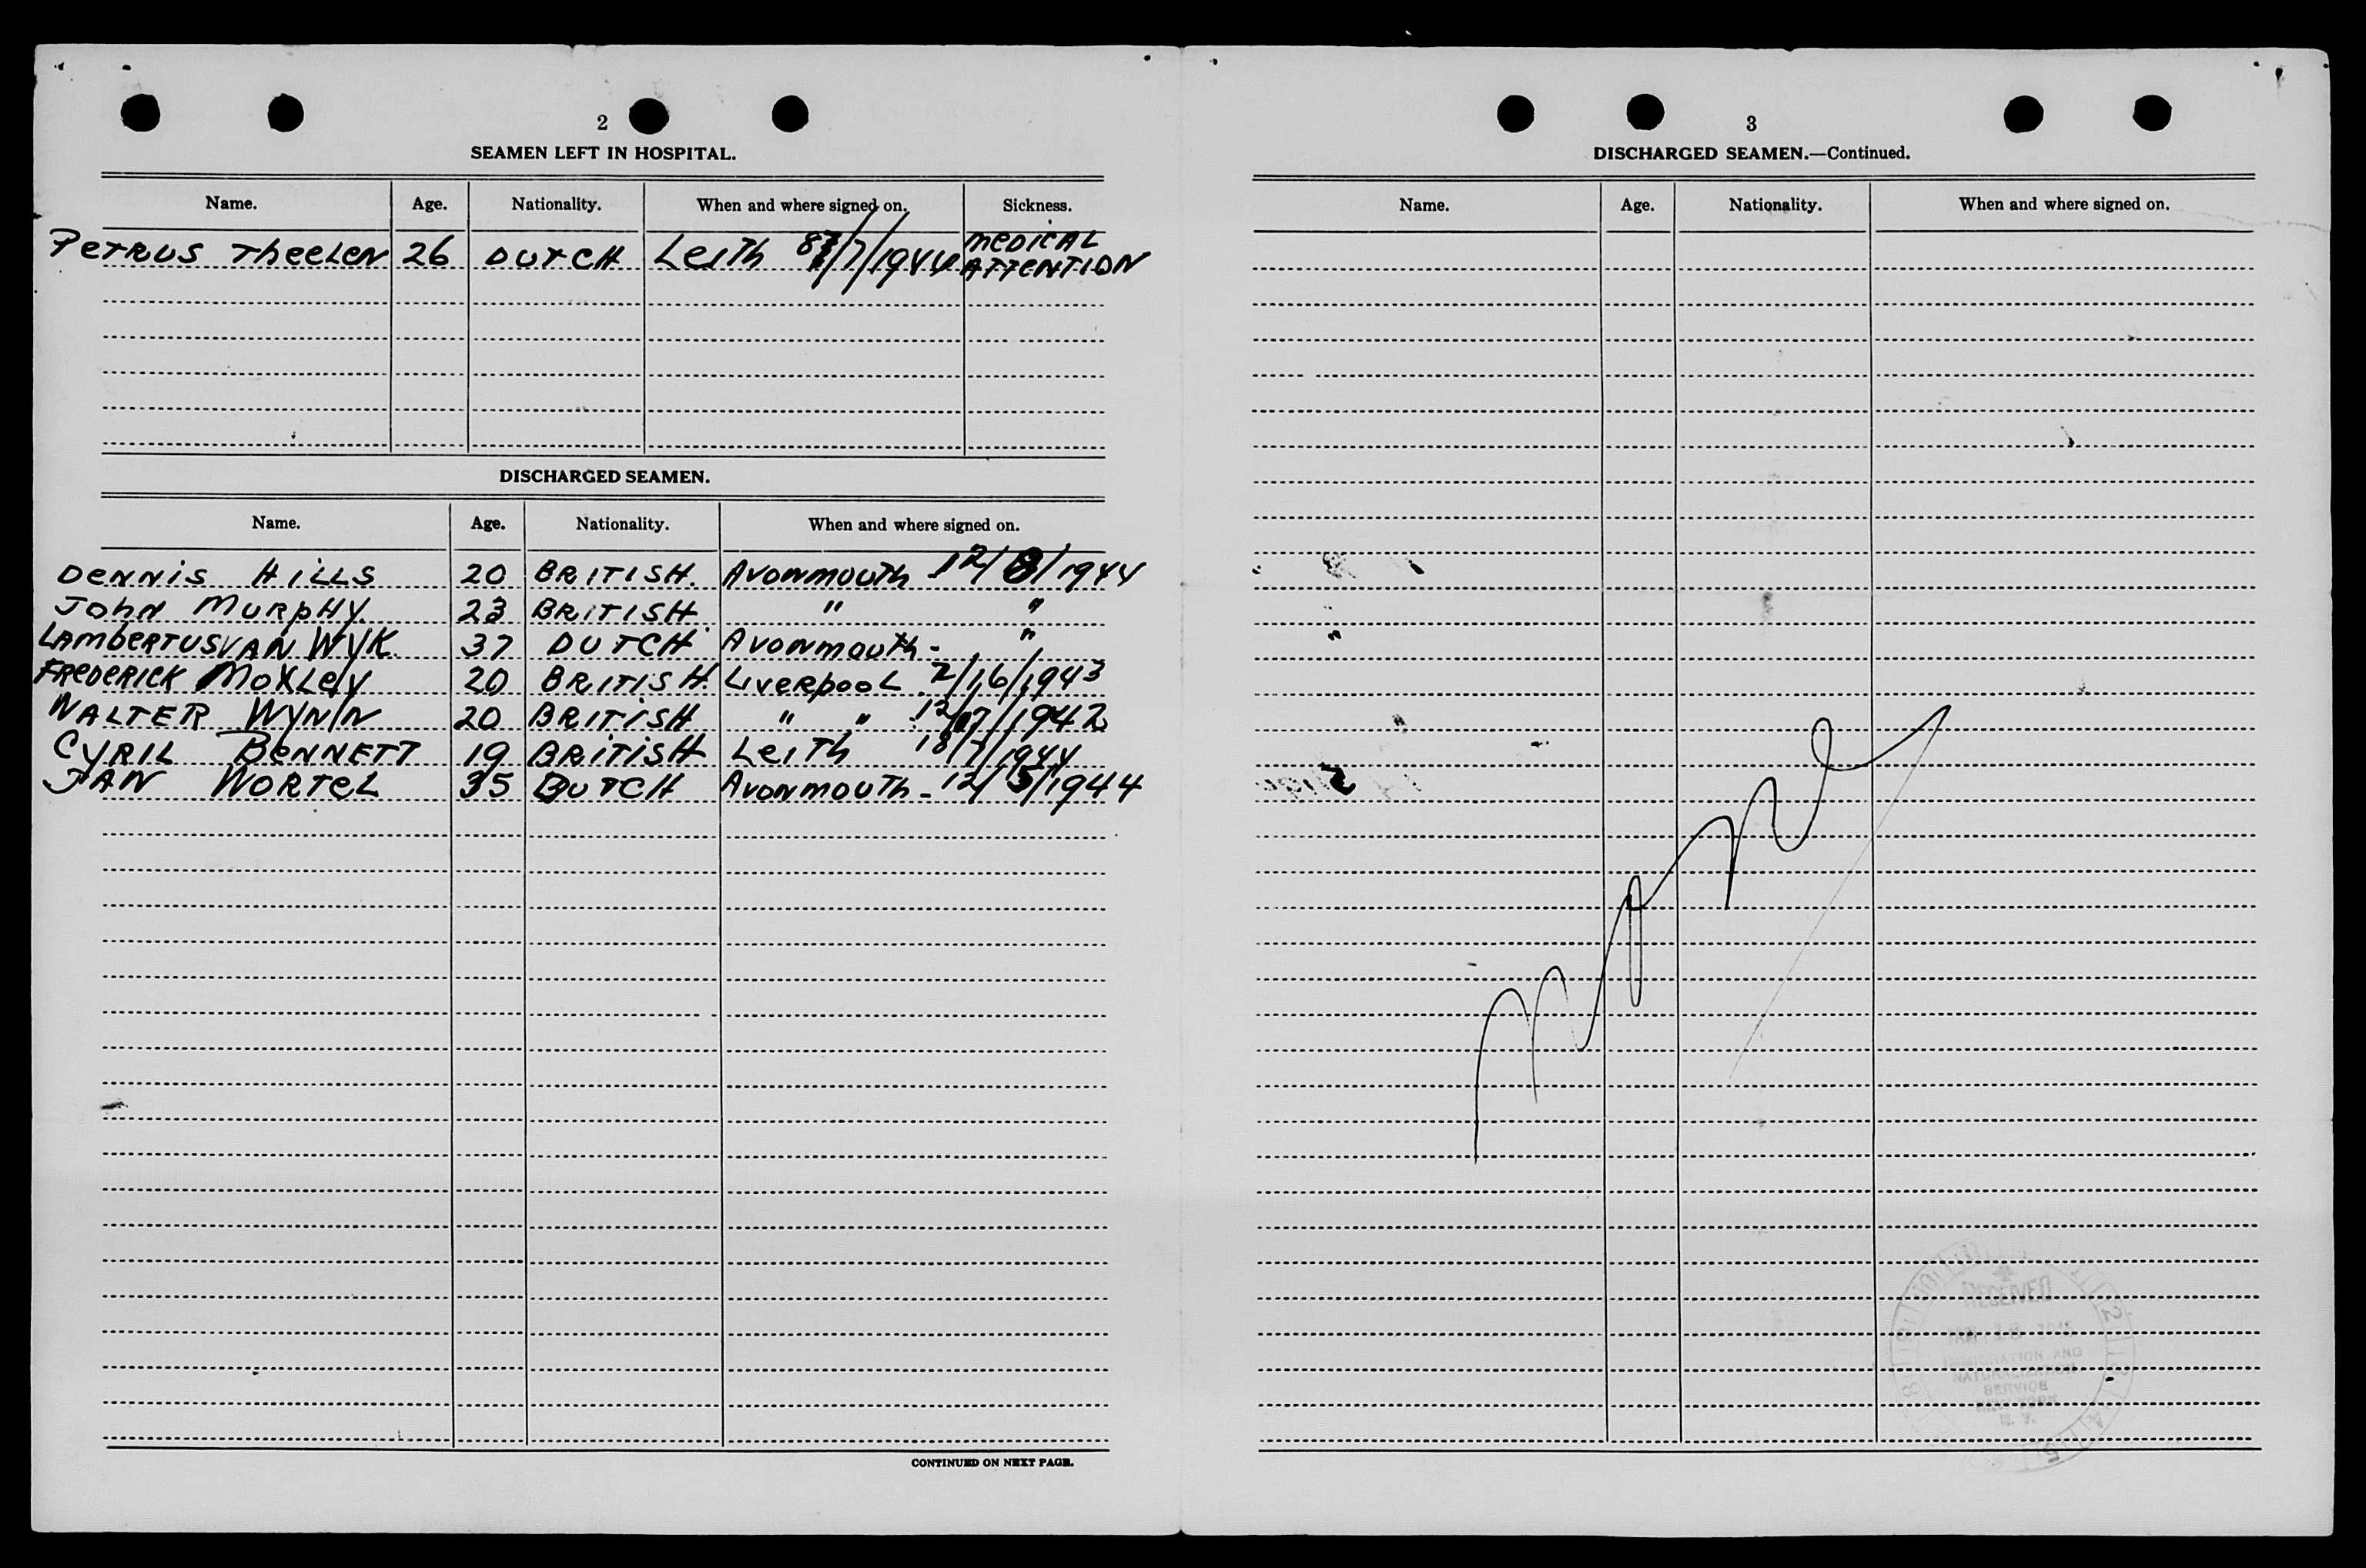 2
SEAMEN LEFT IN HOSPITAL.
Name. Age. Nationality. When and where signed on. Sickness.
PETRUS TheeLeN 26 DUTCH Leith /7/1944 MEDICAL ATTENTION
DISCHARGED SEAMEN.
Name. Age. Nationality. When and where signed on.
DeNNiS HiLLS 20 BRITISH. Avonmouth 12/8/1944
John MURPHY. 23 BRITISH " "
LAMBERTUS VAN WYK. 37 DUTCH Avonmouth - "
FREDERICK MOXLEY 20 BRITISH. LiverpooL 2/16/1943
WALTER WYNN 20 BRITISH " " 12/17/1942
CYRIL BENNETT 19 BRITISH LeiTh 18/7/1944
JAN WORTEL 35 DUTCH Avonmouth - 12/5/1944
CONTINUED ON NEXT PAGE.
3
DISCHARGED SEAMEN.—Continued.
Name. Age. Nationality. When and where signed on.
None
RECEIVED
IMMIGRATION AND
NATURALIZATION
SERVICE
NEW YORK
N. Y.